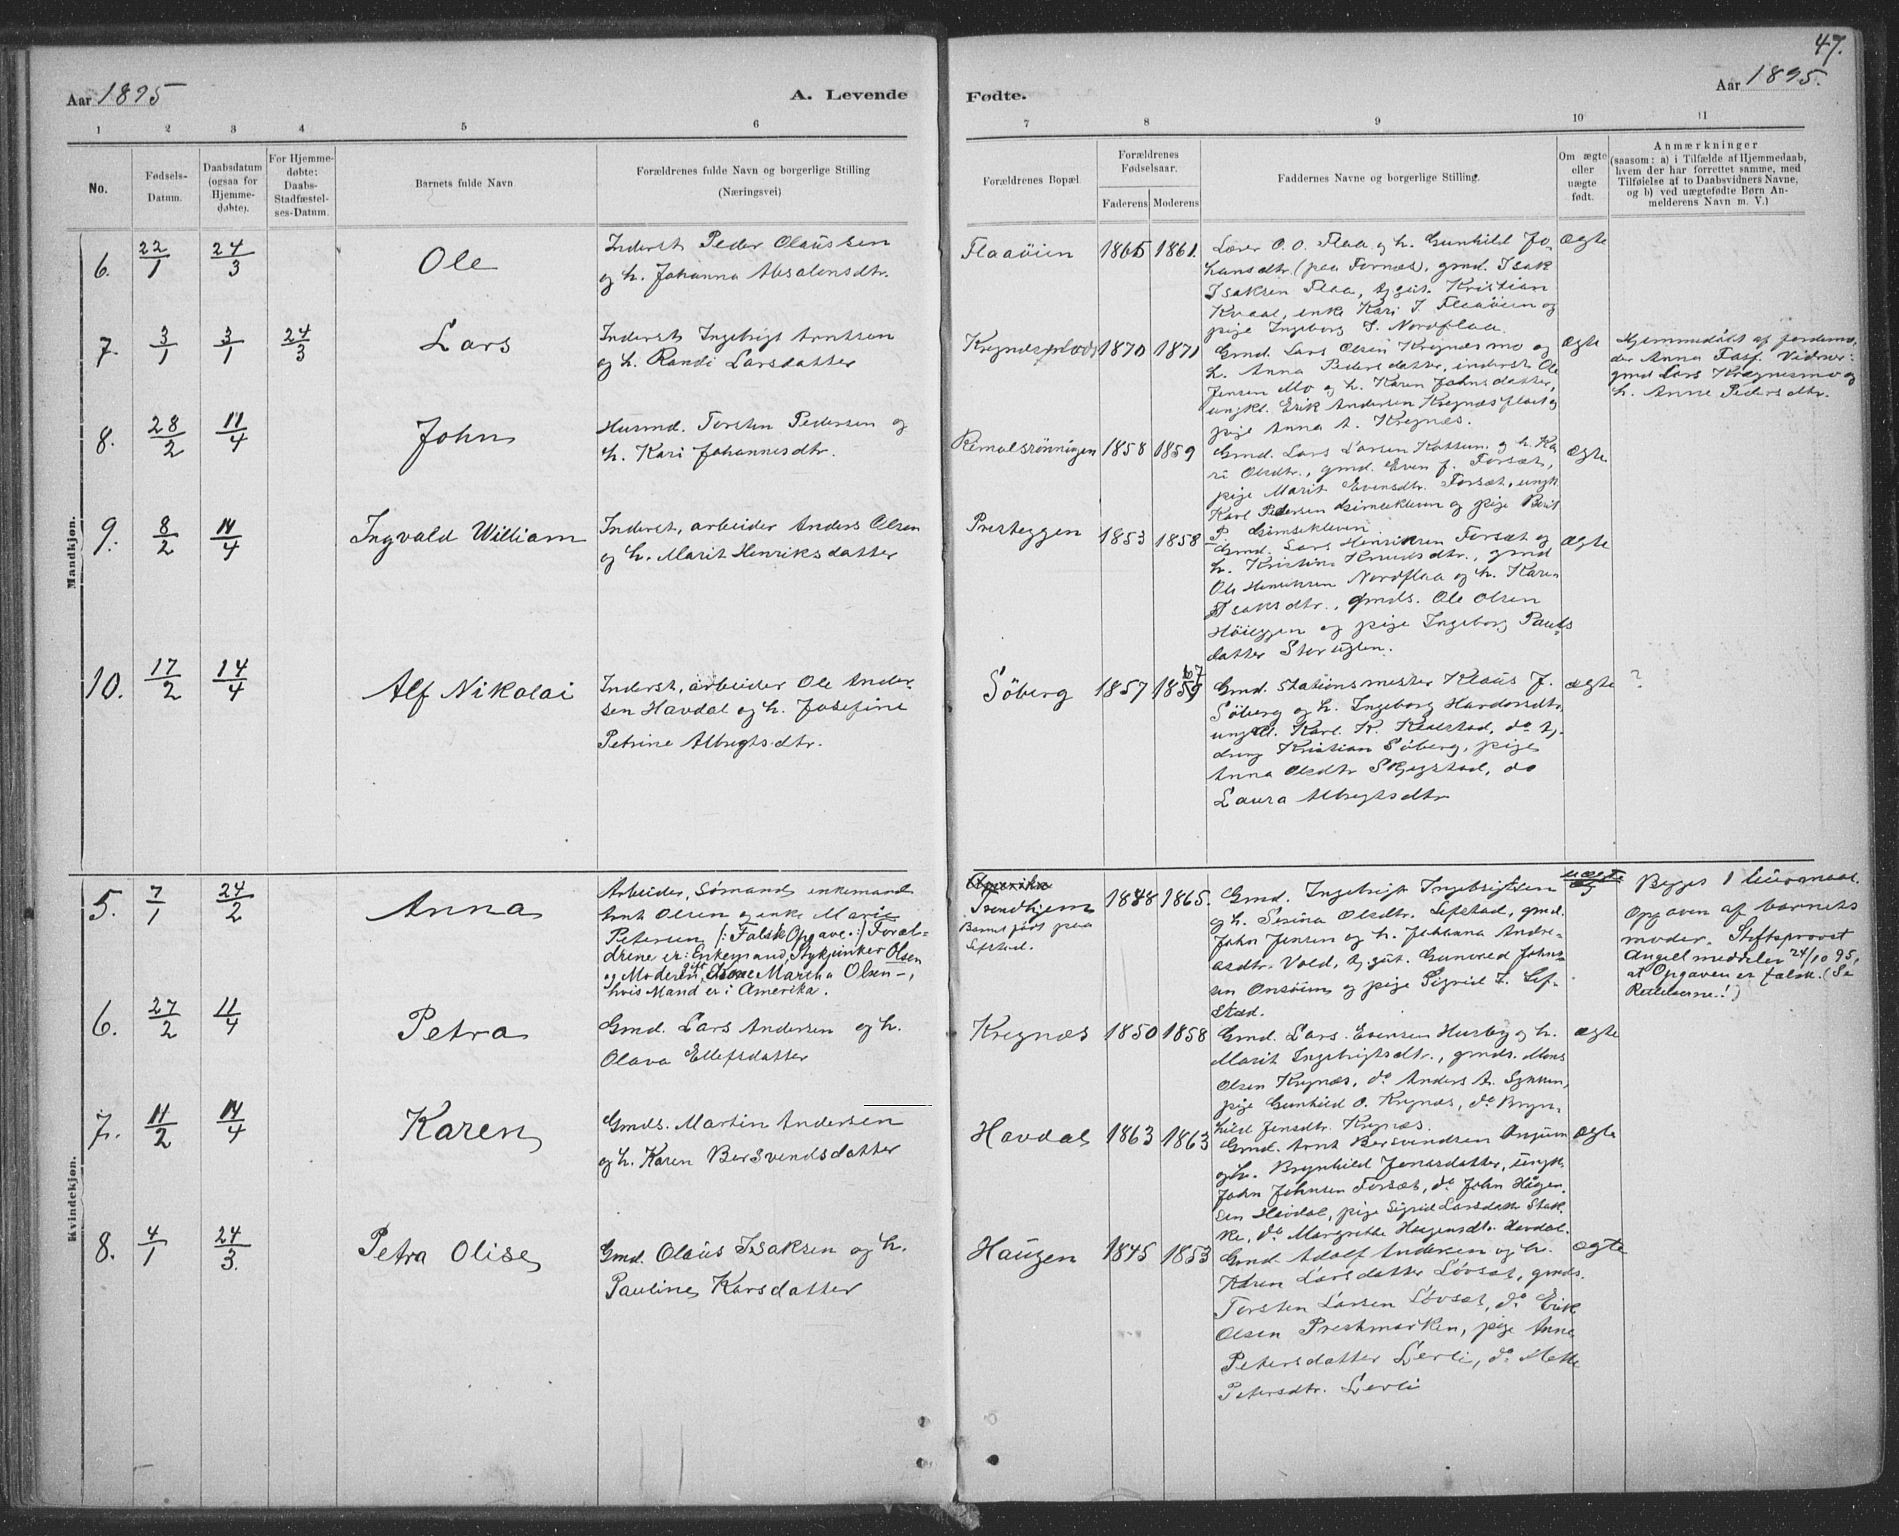 47.
Aar 1895
A. Levende
Fødte.
Aar 1895.
1 2 3 4 5 6 7 8 9 10 11
No.
Fødsels-
Datum.
Daabsdatum
(ogsaa for
Hjemme-
døbte).
For Hjemme-
døbte:
Daabs-
Stadfæstel-
ses-Datum.
Barnets fulde Navn
Forældrenes fulde Navn og borgerlige Stilling
(Næringsvei)
Forældrenes Bopæl.
Forældrenes
Fødselsaar.
Faderens Moderens
Faddernes Navne og borgerlige Stilling.
Om ægte
eller
uægte
født.
Anmærkninger
(saasom: a) i Tilfælde af Hjemmedaab,
hvem der har forrettet samme, med
Tilføielse af to Daabsvidners Navne,
og b) ved uægtefødte Børn An-
melderens Navn m. V.)
Mandkjøn.
6. 22/1 24/3 Ole
Inderst Peder Olaussen
og h. Johanna Absalonsdtr.
Flaaøien 1865 1861.
Lærer O. O. Flaa og h. Gunhild Jo-
hansdtr. (paa Fornæs), gmd. Isak
Isaksen Flaa, tjgut. Kristian
Kvaal, enke Kari J. Flaaøien og
pige Ingeborg J. Nordflaa.
ægte
7. 3/1 3/1 24/3 Lars
Inderst Ingebrigt Arntsen
og h. Randi Larsdatter
Kregnæsplads 1870 1871
Gmd. Lars Olsen Kregnæsmo og
h. Anna Pedersdatter, inderst Ole
Jensen Mo og h. Karen Johnsdatter,
ungkl. Erik Andersen Kregnæsplads og
pige Anna A. Kregnæs.
ægte
Hjemmedøbt af jordemo-
der Anna Fasf. Vidner:
gmd Lars Kregnesmo og
h. Anne Pedersdtr.
8. 28/2 11/4 John
Husmd. Torsten Pedersen og
h. Kari Johannesdtr.
Remolsrønningen 1858 1859
Gmd. Lars Larsen Kattum og h. Ka-
ri Olsdtr., gmd. Even J. Forsæt,
pige Marit Evensdtr. Forsæt, ungk.
Karl Pedersen Gimsekleiven og pige Berit
P. Gimsekleiven
ægte
9. 8/2 14/4 Ingvald William
Inderst, arbeider Anders Olsen
og h. Marit Henriksdatter
Presteggen 1853 1858
Gmd. Lars Henriksen Forsæt og
h. Kristine Knudsdtr., gmd
Ole Henriksen Nordflaa og h. Karen
Isaksdtr., gmds. Ole Olsen
Høieggen og pige Ingeborg Pauls-
datter Storuglen.
ægte
10. 17/2 14/4 Alf Nikolai
Inderst, arbeider Ole Ander-
sen Havdal og h. Josefine
Petrine Albrigtsdtr.
Søberg 1857 1859 67
Gmd. Stationsmester Klaus J.
Søberg og h. Ingeborg Hardosdtr
ungkl. Karl K. Kelstad, do tj.
dreng Kristian Søberg, pige
Anna Olsdtr Skjegstad, do
Laura Albrigtsdtr
ægte ?
Kvindekjøn.
5. 7/1 24/2 Anna
Arbeider, Sømand, enkemand
Arnt Olsen og enke Marie
Petersen (: Falsk Opgave :) Foræl-
drene er: Enkemand, Stykjunker Olsen
og Moderen, gift Kone Martha Olsen –,
hvis Mand er i Amerika.
Amerika
Trondhjem
Barnet født paa
Lefstad.
1848 1865.
Gmd. Ingebrigt Ingebrigtsen
og h. Serina Olsdtr. Lefstad, gmd.
John Jensen og h. Johanna Andre-
asdtr. Vold, tj.gut. Gunvald John-
sen Onsøien og pige Sigrid I. Lef-
stad.
uægte
Begges 1 leiermaal.
Opgaven af barnets
moder. Stiftsprovst
Angell meddeler 24/10 95,
at Opgaven er falsk. (Se
Rettelserne!)
6. 27/2 11/4 Petra
Gmd. Lars Andersen og h.
Olava Ellefsdatter
Kregnæs 1850 1858
Gmd. Lars Evensen Husby og h.
Marit Ingebrigtsdtr., gmds. Mons
Olsen Kregnæs, do. Anders A.
pige Gunhild O. Kregnæs, do. Bryn-
hild Jensdtr. Kregnæs.
ægte
7. 11/2 14/4 Karen
Gmds. Martin Andersen
og h. Karen Bersvendsdatter
Havdal 1863 1863
Gmd. Arnt Bersvendsen Onsøien
og h. Brynhild Jonasdatter, ungk.
John Johnsen Forsæt, do. John Haagen-
sen Havdal, pige Sigrid Larsdatter Stok-
ke, do. Margrethe Haagensdtr. Havdal.
ægte
8. 4/1 24/3. Petra Olise
Gmd. Olaus Isaksen og h.
Pauline Larsdatter
Haugen 1845 1853
Gmd. Adolf Andersen og h.
Karen Larsdatter Løvset, gmds.
Torsten Larsen Løvset, do. Erik
Olsen Prestmarken, pige Anne
Petersdatter Lerli, do. Mette
Petersdtr. Lerli
ægte